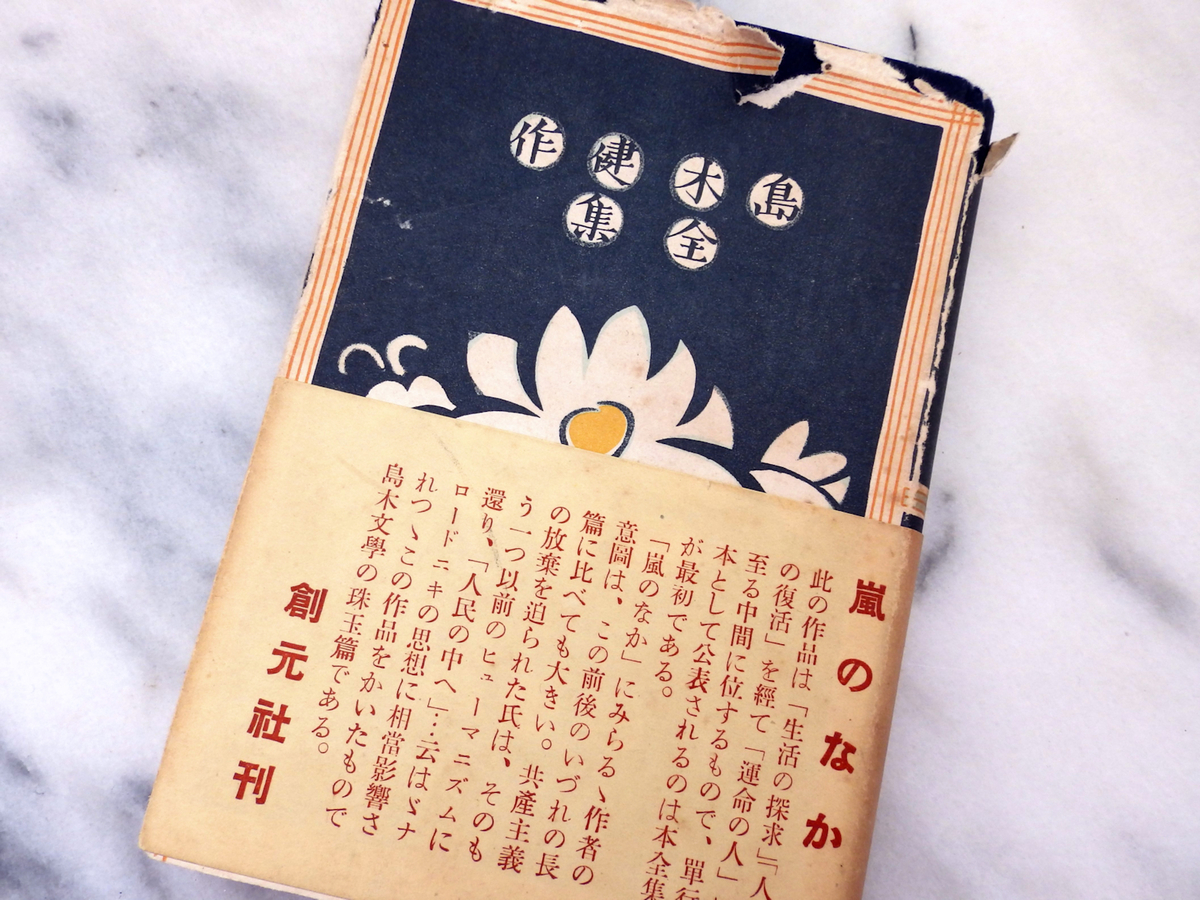 島木健作
全集
嵐のなか
此の作品は「生活の探求」「人
の復活」を經て「運命の人」
至る中間に位するもので、單行
本として公表されるのは本全集
が最初である。
「嵐のなか」にみらるゝ作者の
意圖は、この前後のいづれの長
篇に比べても大きい。共產主義
の放棄を迫られた氏は、そのも
う一つ以前のヒューマニズムに
還り、「人民の中へ」…云はゞナ
ロードニキの思想に相當影響さ
れつゝこの作品をかいたもので
島木文學の珠玉篇である。
創元社刊